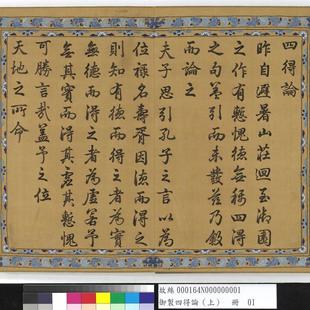 四得論
昨自避暑山莊迴至御園
之作有慙愧德無稱四得
之句第引而未發茲乃敘
而論之
夫子思引孔子之言以為
位祿名壽胥因德而得之
則知有德而得之者為實
無德而得之者為虛若予
無其實而得其虛其慙愧
可勝言哉蓋予之位
天地之所命
故絲 000164N000000001
御製四得論(上) 冊 01